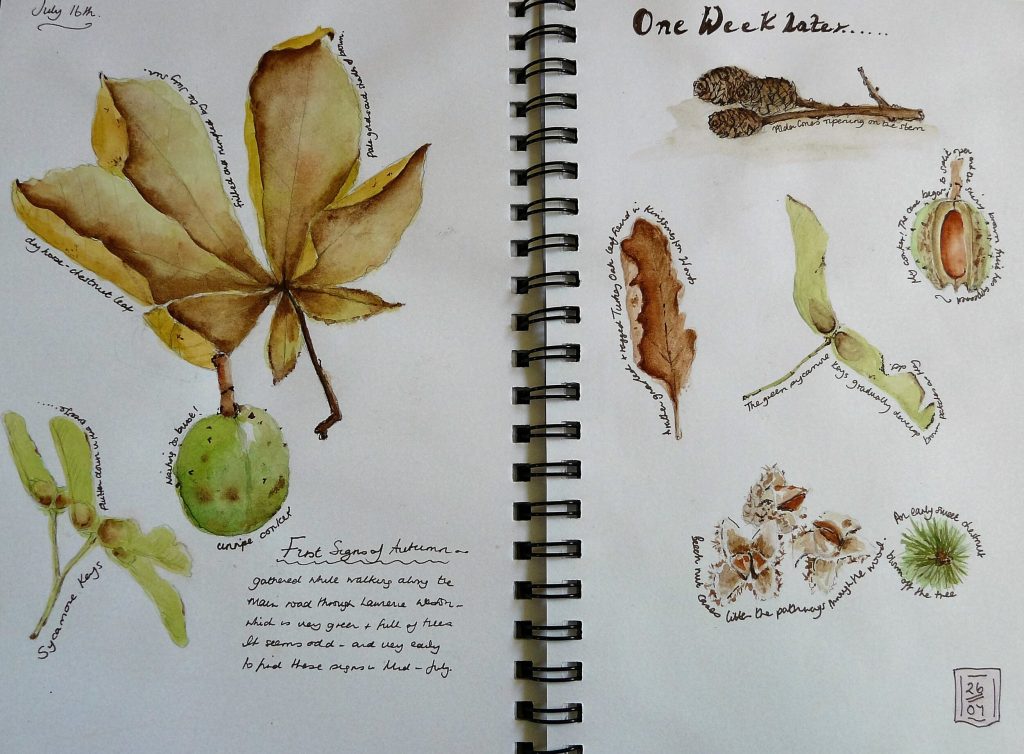 July 16th.
frilled and rumpled by the July sun.
Pale golds and shades of brown.
dry horse-chestnut leaf
waiting to burst!
unripe conker
flutter down in the breeze.....
Sycamore Keys
First Signs of Autumn -
gathered while walking along the
main road through Lawrence Weston -
which is very green + full of trees
It seems odd - and very early
to find these signs in Mid - July.
One Week Later.....
Alder Cones ripening on the stem
My conker! The case began to split open and the shiny brown fruit has appeared
weather-
+ ragged Turkey Oak leaf found in Kingsweston Woods
The green sycamore keys gradually develop
brown
as they dry
beech nut cases litter the pathways through the wood.
An early sweet chestnut
blown off the tree
26
07